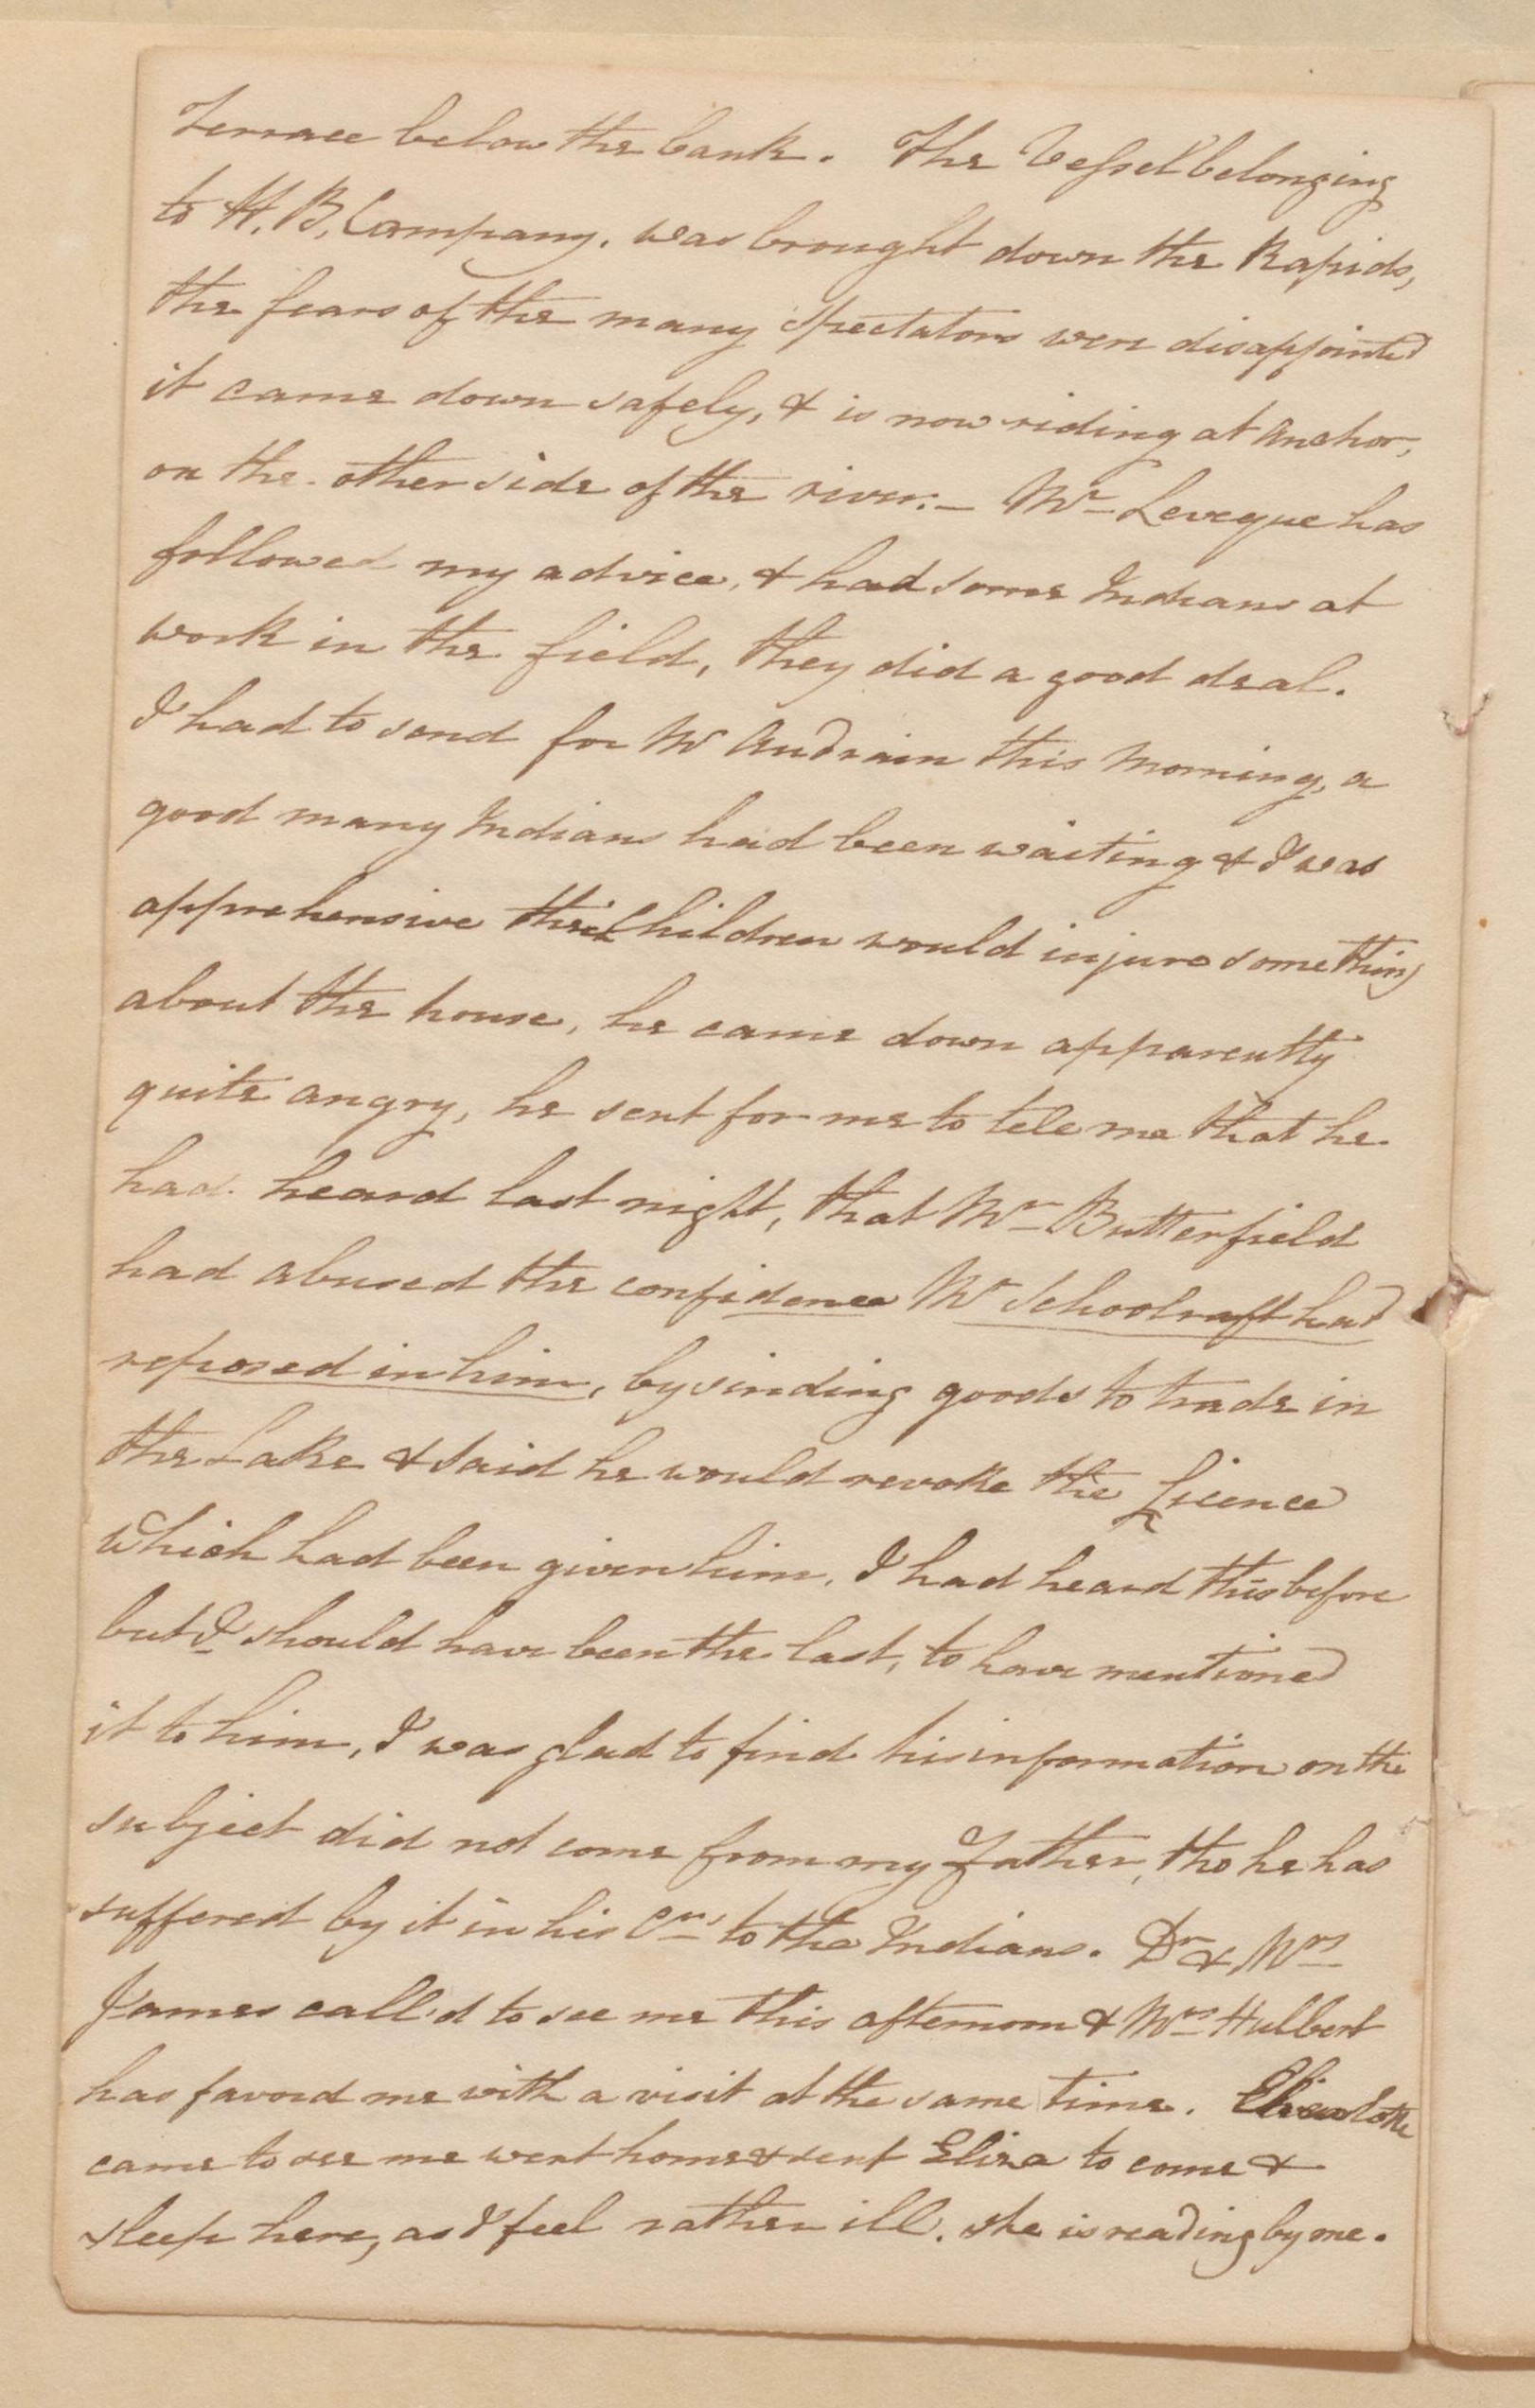 Terrace below the bank. The Vessel belonging
to H. B. Company, was brought down the Rapids,
the fears of the many Spectators were disappointed
it came down safely, & is now riding at anchor,
on the other side of the river. — Mr Leveque has
followed my advice, & had some Indians at
work in the field, they did a good deal.
I had to send for Mr Audrain this Morning, a
good many Indians had been waiting & I was
apprehensive their Children would injure something
about the house, he came down apparently
quite angry, he sent for me to tele me that he
had heard last night, that Mr Butterfield
had abused the confidence Mr Schoolcraft had
reposed in him, by sinding goods to trade in
the Lake & said he would revoke the Licence
which had been given him, I had heard this before
but I should have been the last, to have mentioned
it to him, I was glad to find his information on the
subject did not come from my Father, tho he has
suffered by it in his to the Indians. Dr & Mrs
James call'd to see me this afternoon & Mrs Hulbert
has favord me with a visit at the same time. Charlotte
came to see me went home & sent Eliza to come &
sleep here, as I feel rather ill. she is reading by me.